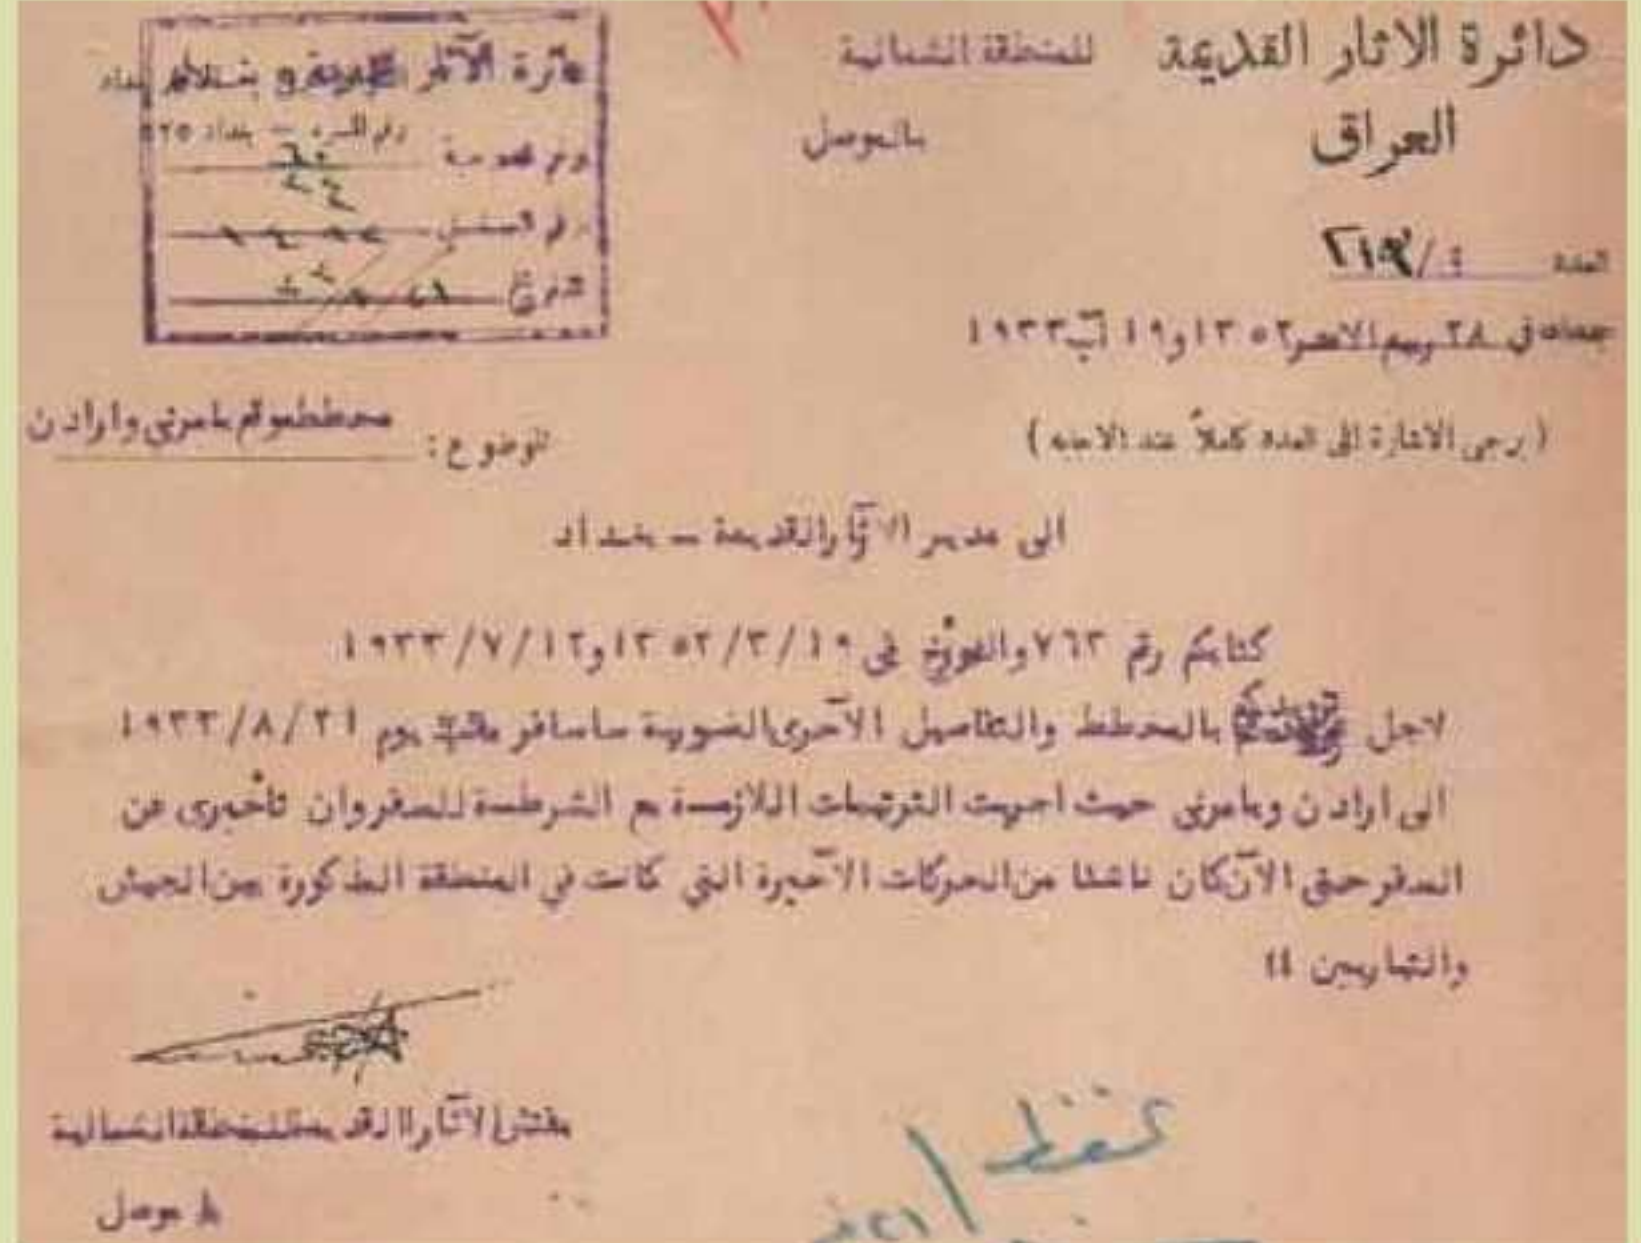 دائرة الاثار القديمة
العراق
للمنطقة الشمالية
بالموصل
دائرة الآثار القديمة بغداد
رقم
رقم السجل
التاريخ
العدد ٤/
في ٢٨ ربيع الاخر ١٣٥٢ و١٩ آب ١٩٣٣
(يرجى الاشارة الى العدد كاملاً عند الاجابة)
الموضوع: مخطط موقع بامرني وارادن
الى مدير الآثار القديمة – بغداد
كتابكم رقم ٧٦٣ والمؤرخ في ١٩/٣/١٣٥٢ و١٢/٧/١٩٣٣
لاجل بالمخطط والتفاصيل الآخرى الضرورية ساسافر يوم ٢١/٨/١٩٣٣
الى ارادن وبامرنى حيث اجريت الترتيبات اللازمة مع الشرطة للسفر وان تأخيرى عن
السفر حتى الآن كان ناشئا من الحركات الآخيرة التي كانت في المنطقة المذكورة بين الجيش
والتياريين
مفتش الآثار القديمة للمنطقة الشمالية
موصل
تحفظ